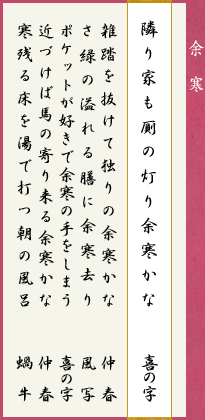 余寒
隣り家も厠の灯り余寒かな 喜の字
雑踏を抜けて独りの余寒かな 仲春
さ緑の溢れる膳に余寒去り 風写
ポケットが好きで余寒の手をしまう 喜の字
近づけば馬の寄り来る余寒かな 仲春
寒残る床を湯で打つ朝の風呂 蝸牛